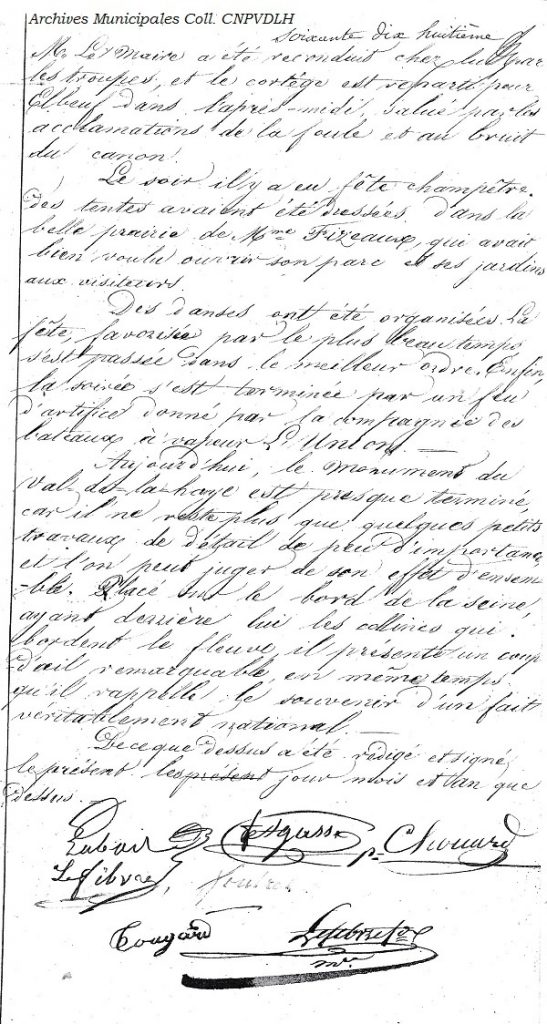 Archives Municipales Coll. CNPVDLH
soixante dix huitième
Mr Le Maire a été reconduit chez lui par
les troupes, et le cortège est reparti pour
Elbeuf dans l'après-midi, salué par les
acclamations de la foule et au bruit
du canon.
Le soir il y a eu fête champêtre.
des tentes avaient été dressées dans la
belle prairie de Mme Fizeaux, qui avait
bien voulu ouvrir son parc et ses jardins
aux visiteurs.
Des danses ont été organisées. La
fête, favorisée par le plus beau temps
s'est passée dans le meilleur ordre. Enfin,
la soirée s'est terminée par un feu
d'artifice donné par la compagnie des
bateaux à vapeur L'Union. —
Aujourd'hui, le Monument du
Val-de-la-haye est presque terminé,
car il ne reste plus que quelques petits
travaux de détail de peu d'importance,
et l'on peut juger de son effet d'ensem
-ble. Placé sur le bord de la seine,
ayant derrière lui les collines qui
bordent le fleuve, il présente un coup
d'œil remarquable, en même temps
qu'il rappelle le souvenir d'un fait
véritablement national. —
De ce que dessus a été rédigé et signé,
le présent les présent jour mois et an que
dessus. —
Chouard
Lefebvre,
Tougard